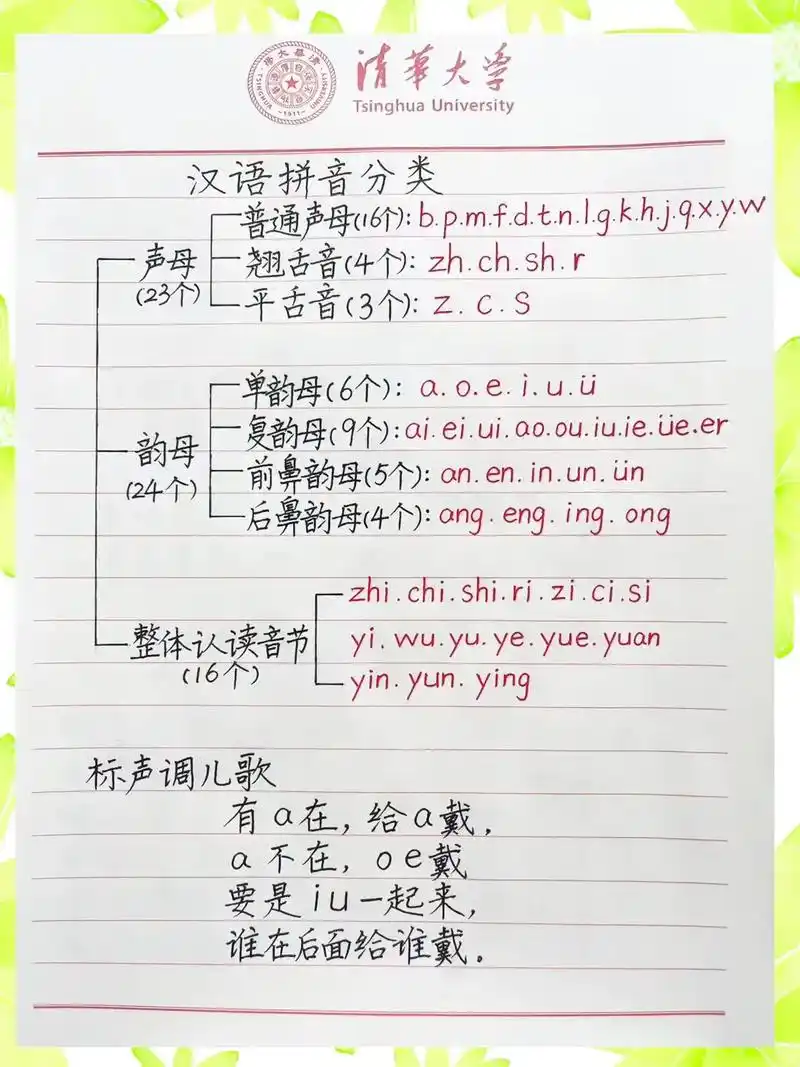 清華大学
Tsinghua University
TSINGHUA UNIVERSITY
1911
汉语拼音分类
声母
(23个)
普通声母(16个): b.p.m.f.d.t.n.l.g.k.h.j.q.x.y.w
翘舌音(4个): zh.ch.sh.r
平舌音(3个): z.c.s
韵母
(24个)
单韵母(6个): a.o.e.i.u.ü
复韵母(9个): ai.ei.ui.ao.ou.iu.ie.üe.er
前鼻韵母(5个): an.en.in.un.ün
后鼻韵母(4个): ang.eng.ing.ong
整体认读音节
(16个)
zhi.chi.shi.ri.zi.ci.si
yi.wu.yu.ye.yue.yuan
yin.yun.ying
标声调儿歌
有a在,给a戴,
a不在,oe戴
要是iu一起来,
谁在后面给谁戴。